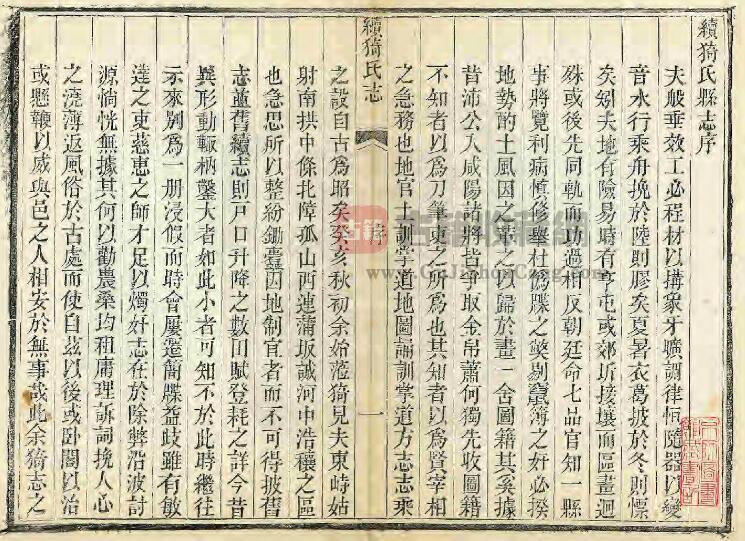 續猗氏縣志序
夫般垂效工必程材以搆象牙曠調律恒隨器以變
音水行乘舟挽於陸則膠矣夏暑衣葛披於冬則慄
矣矧夫地有險易時有亨屯或郊圻接壤而區畫迥
殊或後先同軌而功過相反朝廷命七品官知一縣
事將覽利病慎修舉杜僞牒之獘剔竄簿之奸必揆
地勢酌土風因之革之以歸於畫一舍圖籍其奚據
昔沛公入咸陽諸將皆爭取金帛蕭何獨先收圖籍
不知者以爲刀筆吏之所爲也其知者以爲賢宰相
之急務也地官土訓掌道地圖誦訓掌道方志志乘
續猗氏志
序
一
之設自古爲昭矣癸亥秋初余始蒞猗見夫東峙姑
射南拱中條北障孤山西連蒲坂誠河中浩穰之區
也急思所以整紛鋤蠹因地制宜者而不可得披舊
志並舊續志則戸口升降之數田賦登耗之詳今昔
異形動輒枘鑿大者如此小者可知不於此時繼往
示來別爲一册浸假而時會屢遷簡牒益歧雖有敏
達之吏慈惠之師才足以燭奸志在於除弊沿波討
源惝恍無據其何以勸農桑均租庸理訴詞挽人心
之澆薄返風俗於古處而使自兹以後或卧閣以治
或懸鞭以威與邑之人相安於無事哉此余猗志之